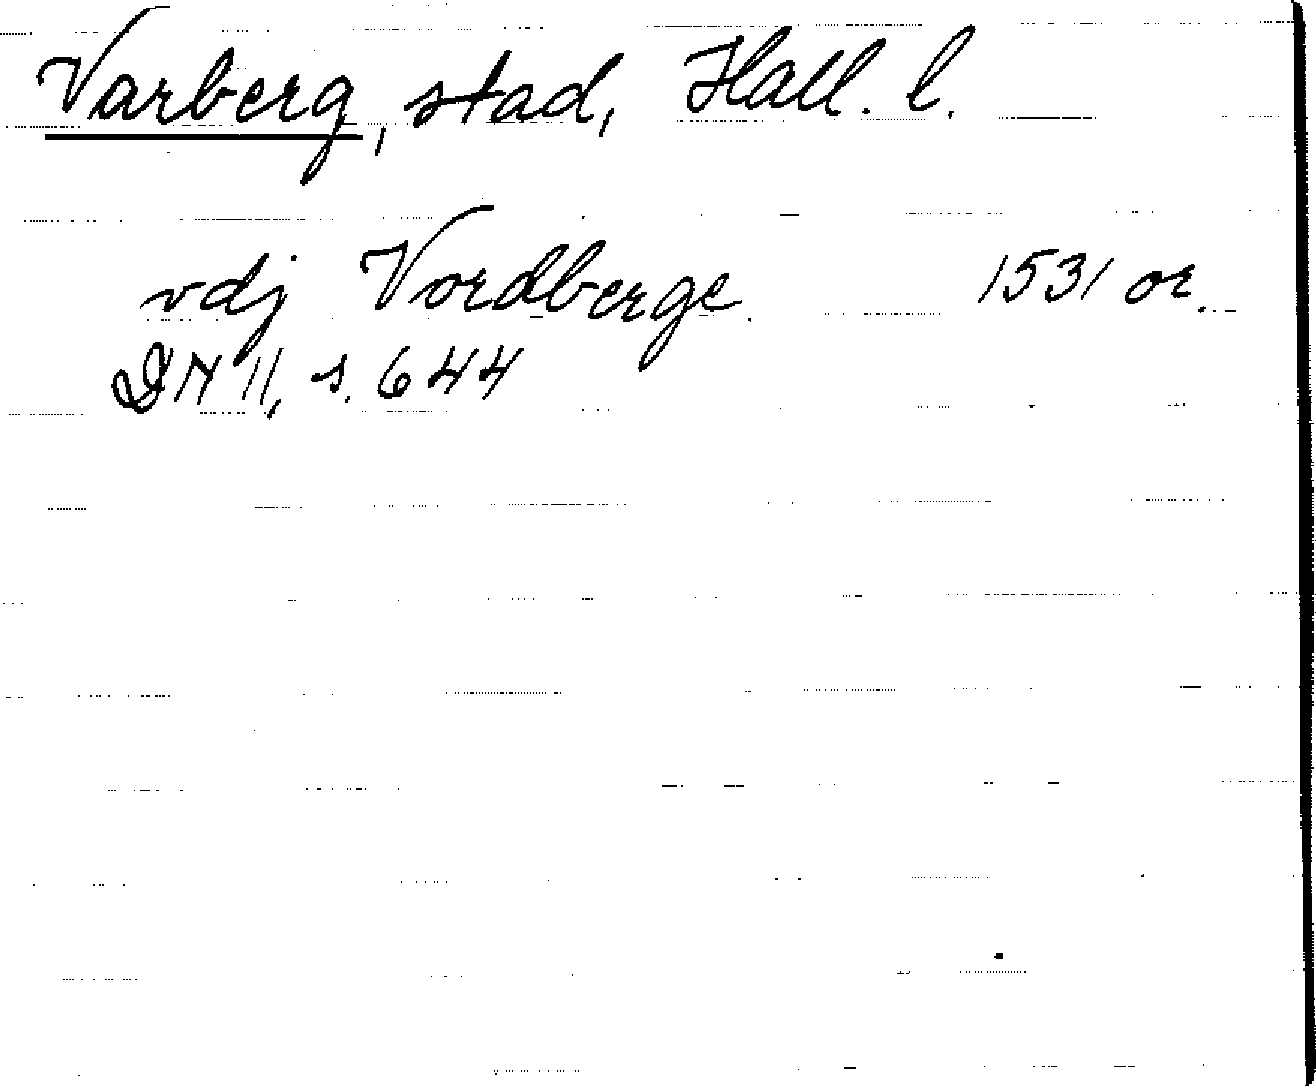 Varberg, stad, Hall. l.
vdj Vordberge 1531 or.
DN 11, s. 644